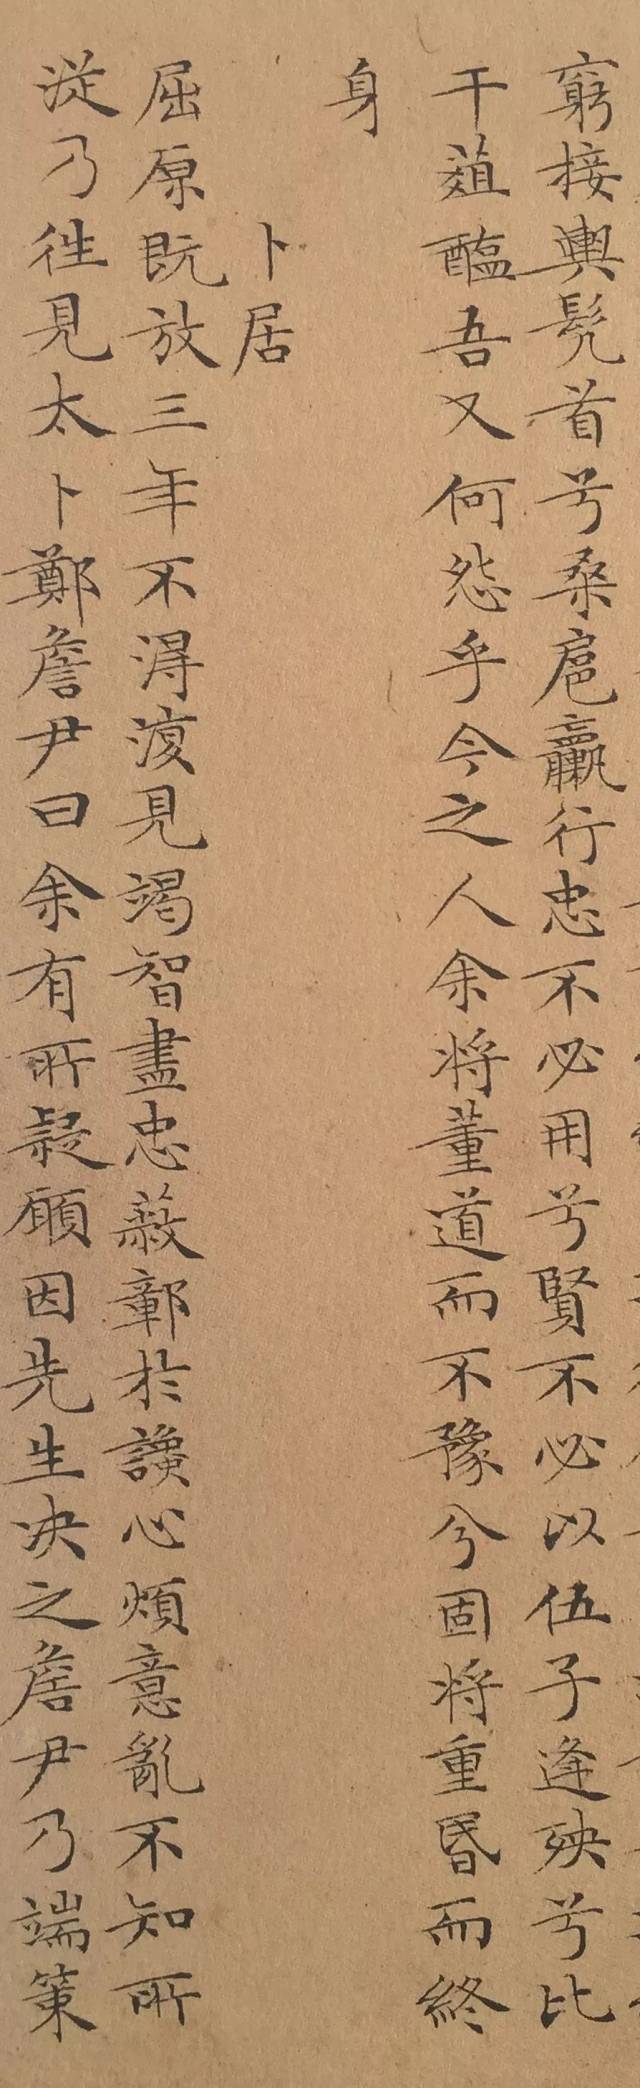 窮接輿髡首兮桑扈臝行忠不必用兮賢不必以伍子逢殃兮比
干菹醢吾又何怨乎今之人余将董道而不豫兮固将重昏而終
身
卜居
屈原既放三年不得復見竭智盡忠蔽鄣於讒心煩意亂不知所
從乃往見太卜鄭詹尹曰余有所疑願因先生决之詹尹乃端策